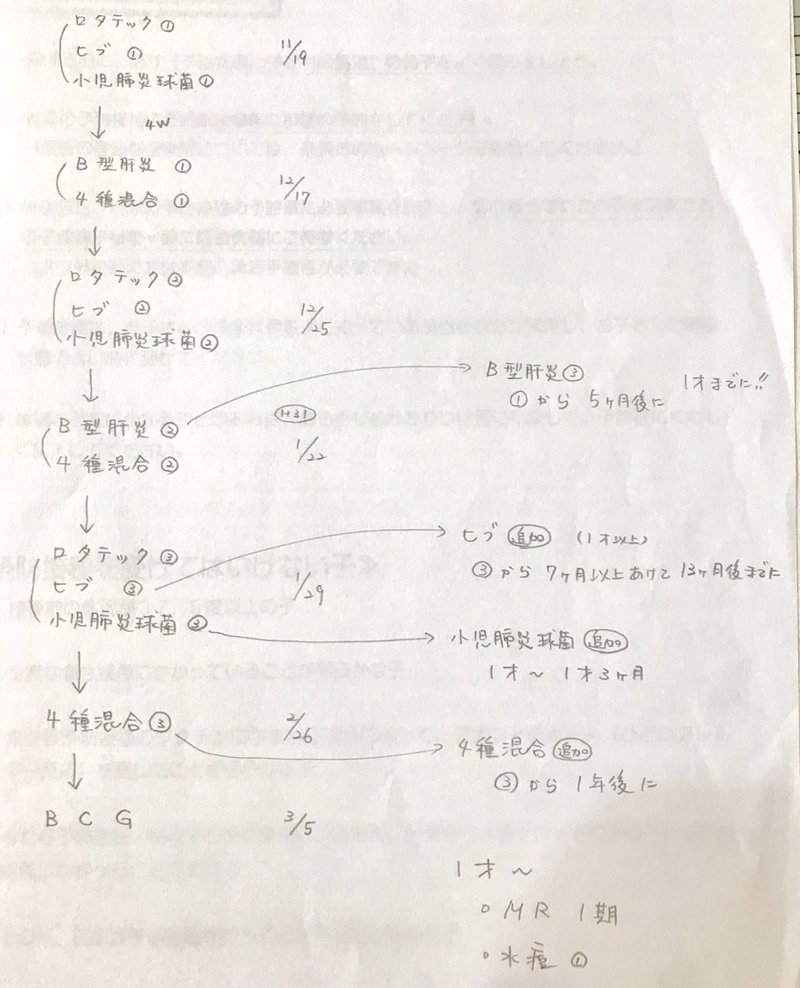 ロタテック①
ヒブ ① 11/19
小児肺炎球菌①
4W
B型肝炎 ①
4種混合 ① 12/17
ロタテック②
ヒブ ② 12/25
小児肺炎球菌②
B型肝炎③ 1才までに!!
①から 5ヶ月後に
B型肝炎② H31
4種混合② 1/22
ロタテック③
ヒブ ③ 1/29
小児肺炎球菌③
ヒブ 追加 (1才以上)
③から 7ヶ月以上あけて 13ヶ月後までに
小児肺炎球菌 追加
1才～1才3ヶ月
4種混合③ 2/26
4種混合 追加
③から 1年後に
BCG 3/5
1才～
○MR 1期
○水痘 ①